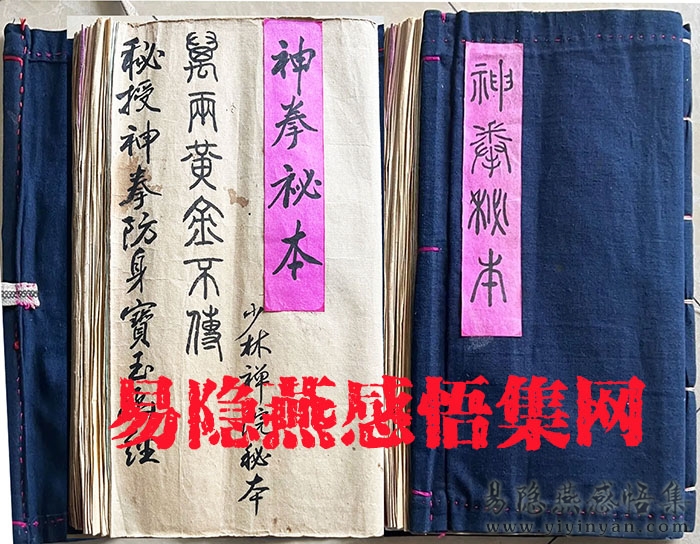 神拳祕本
少林禅院秘本
萬兩黃金不傳
秘授神拳防身寶玉經
神拳秘本
易隐燕感悟集网
易隐燕感悟集
www.yiyinyan.com